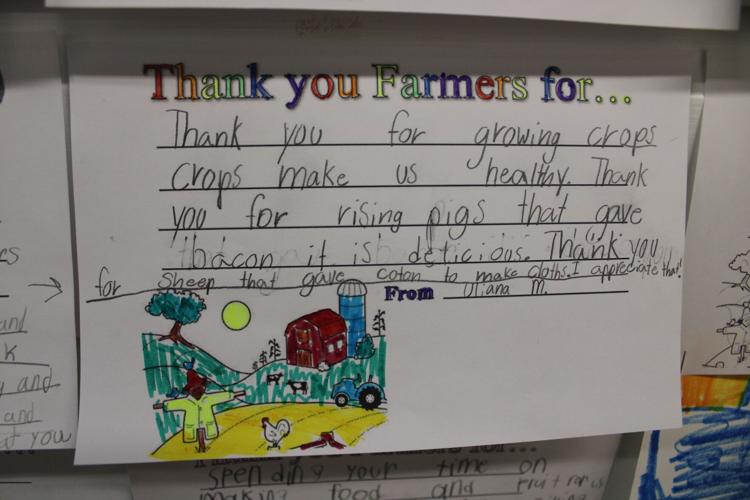 Thank you Farmers for...
Thank you for growing crops
crops make us healthy. Thank
you for rising pigs that gave
bacon it is delicious. Thank you
for sheep that gave coton to make cloths. I appreciate that!
From Uliana M.
and
k
y and
and
at you
spending your time on
making food and fruit for us